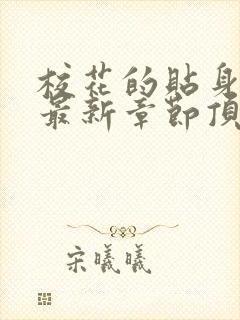 校花的貼身
最新章節頂
宋曦曦